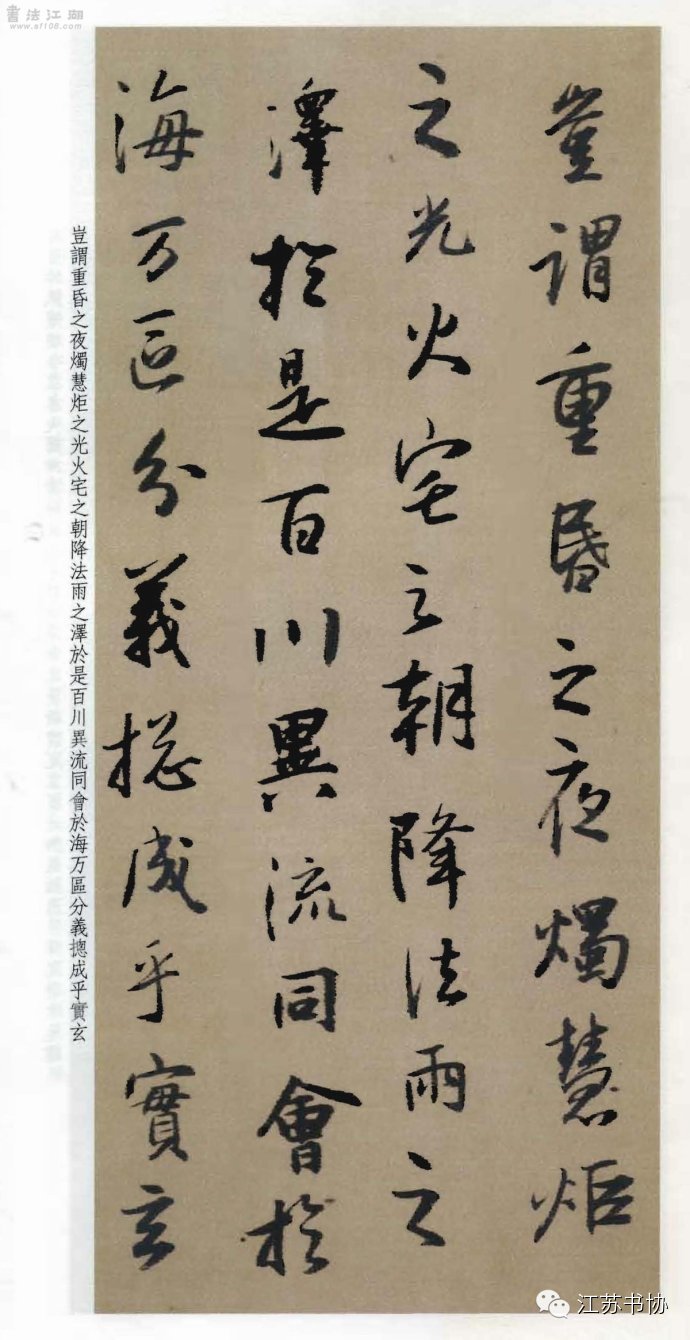 書法江湖
www.sf108.com
豈謂重昏之夜燭慧炬
之光火宅之朝降法雨之
澤於是百川異流同會於
海万區分義揔成乎實玄
豈謂重昏之夜燭慧炬之光火宅之朝降法雨之澤於是百川異流同會於海万區分義摠成乎實玄
江苏书协